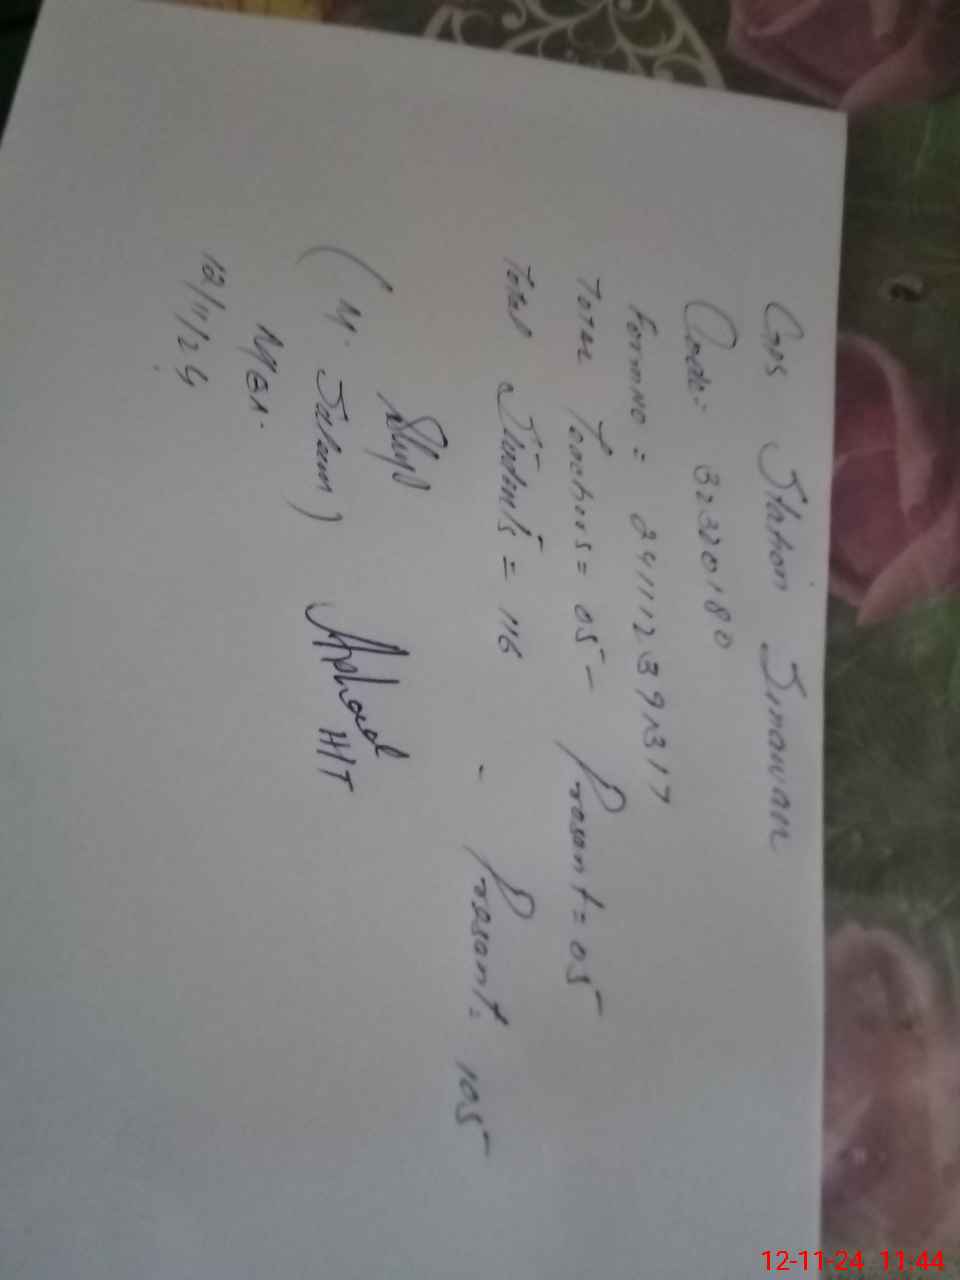 GPS Station Jinawar
Code: 32320180
Form No = 241112391317
Total Teachers = 05 Present = 05
Total Students = 116 - Present = 105
(M. Saleem)
MEA.
12/11/24
Arshad
H/T
12-11-24 11:44